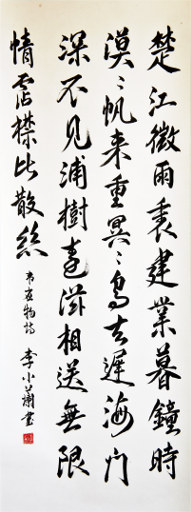 楚江微雨裏建業暮鐘時
漠〻帆来重冥〻鳥去遲海门
深不見浦樹遠滋相送無限
情霑襟比散絲
韋應物詩 李小書